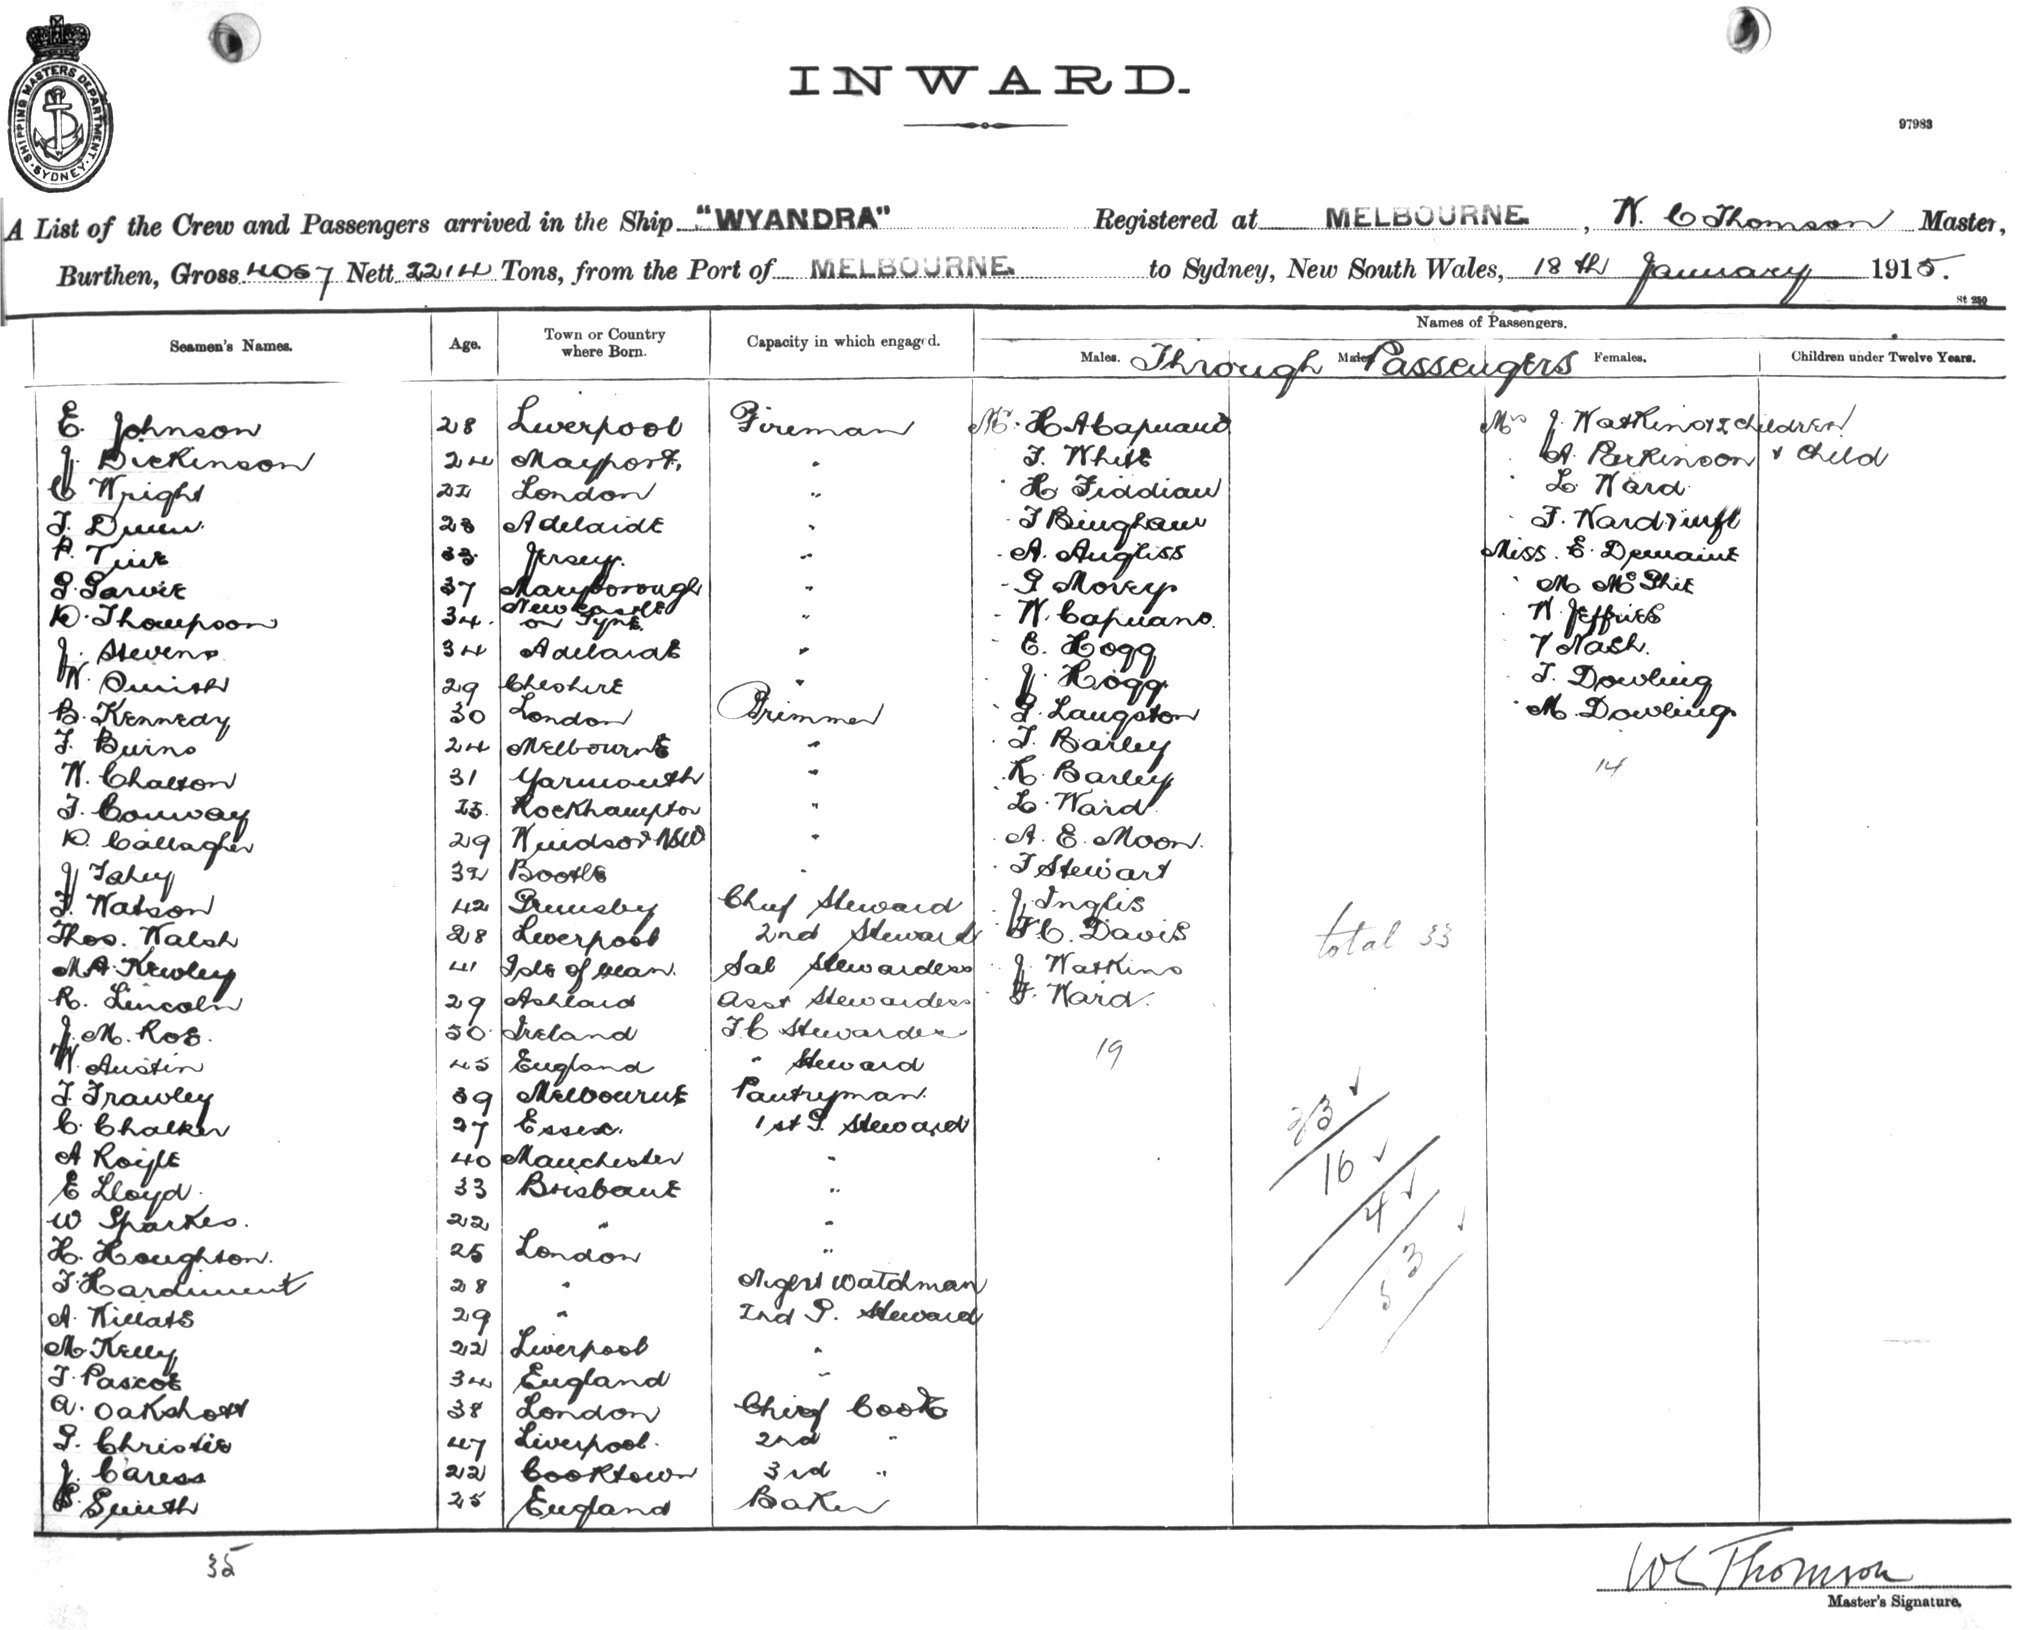 SHIPPING MASTERS DEPARTMENT
SYDNEY
INWARD.
97983
A List of the Crew and Passengers arrived in the Ship "WYANDRA" Registered at MELBOURNE, W. C Thomson Master,
Burthen, Gross 4057 Nett 2214 Tons, from the Port of MELBOURNE. to Sydney, New South Wales, 18th January 1915.
St 250
Seamen's Names. Age. Town or Country where Born. Capacity in which engaged. Names of Passengers.
Males. Males Females. Children under Twelve Years.
Through Passengers
E. Johnson 28 Liverpool Fireman Mr. H A Capuano Mrs J. Watkins & 2 children
J. Dickinson 24 Maryport, " T. White " A. Parkinson & child
C Wright 22 London " " H Fiddian " L. Ward
T. Dunn 23 Adelaide " " T Bingham " F. Ward & inft
P. Tive 33 Jersey. " - A. Angliss Miss. E. Demaine
G Garvie 37 Maryborough " - G Morey " M McPhie
D. Thompson 34 Newcastle on Tyne " - W. Capuano " W Jeffries
J. Stevens 34 Adelaide " - E. Hogg V Nash.
W. Smith 29 Cheshire " J. Hogg T. Dowling
B. Kennedy 30 London Trimmer G. Langston " M. Dowling
T. Burns 24 Melbourne " T. Bailey
W. Chalton 31 Yarmouth " K. Bailey 14
T. Conway 25 Rockhampton " L. Ward
D. Callagher 29 Windsor NSW " A. E. Moon.
J Fahey 32 Bootle " T Stewart
F. Watson 42 Grimsby Chief Steward J. Inglis
Thos. Walsh 28 Liverpool 2nd Steward F. C. Davis total 33
M A Kewley 41 Isle of Man. Sal Stewardess J Watkins
R. Lincoln 29 Ashland asst Stewardess F. Ward.
J. M. Roe. 30 Ireland F. C Stewardess
W Austin 45 England " Steward 19
T. Frawley 39 Melbourne Pantryman.
C. Chalker 27 Essex. 1st G. Steward 33
A Roifle 40 Manchester " 16
E Lloyd. 33 Brisbane "
W Sparkes. 22 " " 4
H. Houghton. 25 London " 3
T. Hardiment 28 " Night Watchman
A. Willats 29 " 2nd G. Steward 5
M Kelly 22 Liverpool "
T. Pascoe 34 England "
A. Oakshott 38 London Chief Cook
G. Christie 47 Liverpool. 2nd "
J. Caress 22 Cooktown 3rd "
S. Smith 25 England Baker
35
W C Thomson
Master's Signature.